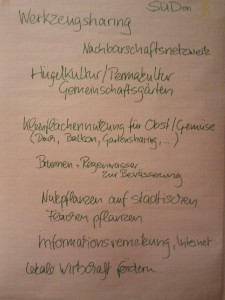 SUDon
Werkzeugsharing
Nachbarschaftsnetzwerk
Hügelkultur/Permakultur
Gemeinschaftsgärten
flächennutzung für Obst/Gemüse
(Dach, Balkon, Gartensharing,...)
Brunnen + Regenwasser
zur Bewässerung
Nutzpflanzen auf städtischen
Flächen pflanzen
Informationsvernetzung, Internet
lokale Wirtschaft fördern